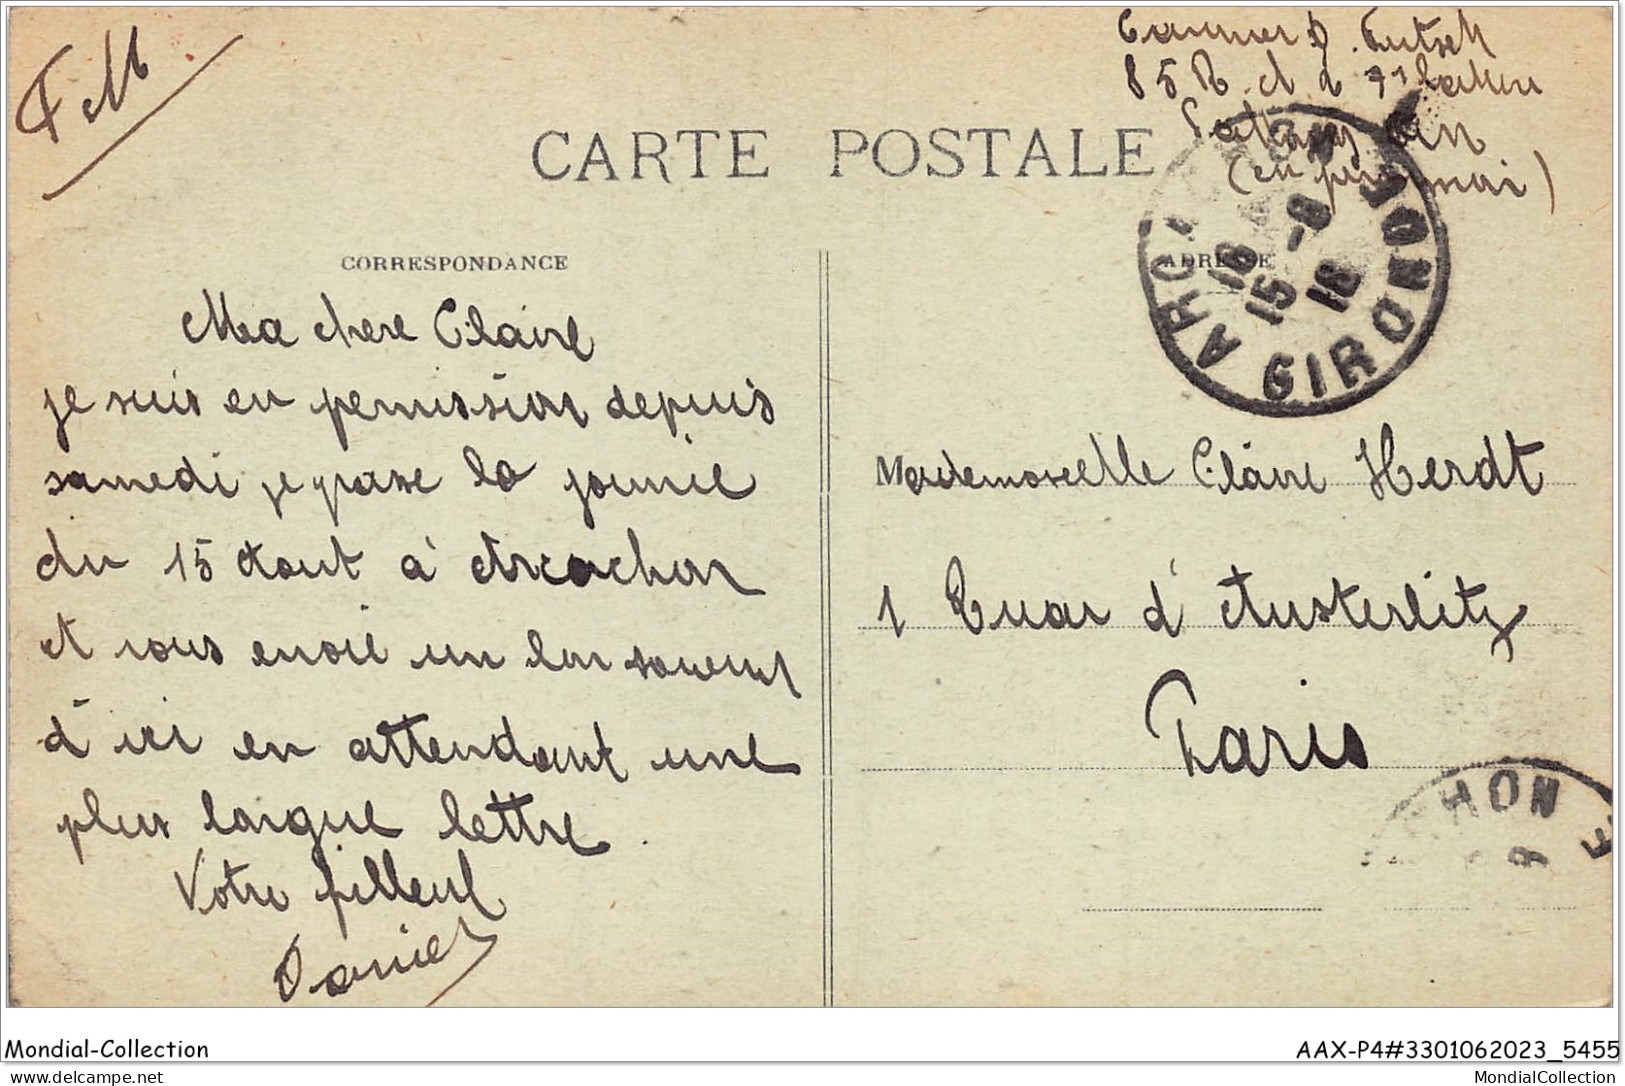 FM
CARTE POSTALE
85 R.A.
(en
CORRESPONDANCE
ADRESSE
ARCACHON
GIRONDE
18
15 -8
18
Ma chere Claire
je suis en permission depuis
samedi je passe la journée
du 15 Aout à Arcachon
et vous envoie un bon souvenir
d'ici en attendant une
plus longue lettre.
Votre filleul
Daniel
Mademoiselle Claire Herdt
1 Quai d'Austerlitz
Paris
CHON
8
Mondial-Collection
AAX-P4#3301062023_5455
www.delcampe.net
MondialCollection